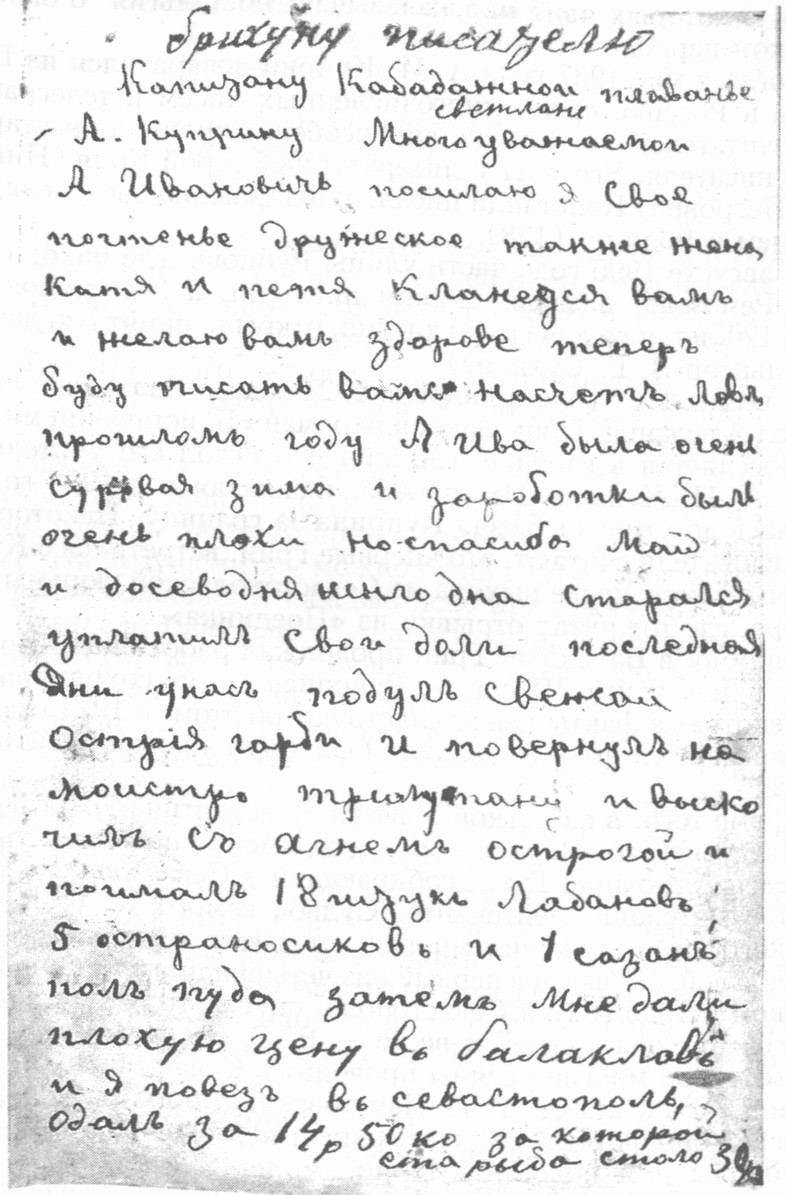 брихуну писателю
Капизану Кабадажной плаванье
светлани
А. Куприну Многоуважаемой
А Ивановичъ посилаю я Свое
почтенье дружеское также жена
Катя и петя Кланеуся вамъ
и желаю вамъ здарове теперъ
буду писатъ вамъ насчетъ Ловъ
прошломъ году А Ива была очен
суровая зима и зароботки был
очень плохи на-слюмбо, май
и досеводня многодна старался
уплатилъ Свои далги последная
Дни унасъ подулъ Свежай
Острія гарби и повернулъ на
моистро и выско
чилъ Со агнемъ острогой и
поималъ 18 штукъ Лабановъ,
5 остраносиковъ и 1 сазанъ,
полъ пуда затемъ Мне дали
плохую цену въ балаклавъ
и я повезъ въ севастополь,
одалъ за 14р 50ко за которой
ета рыба столо 30р